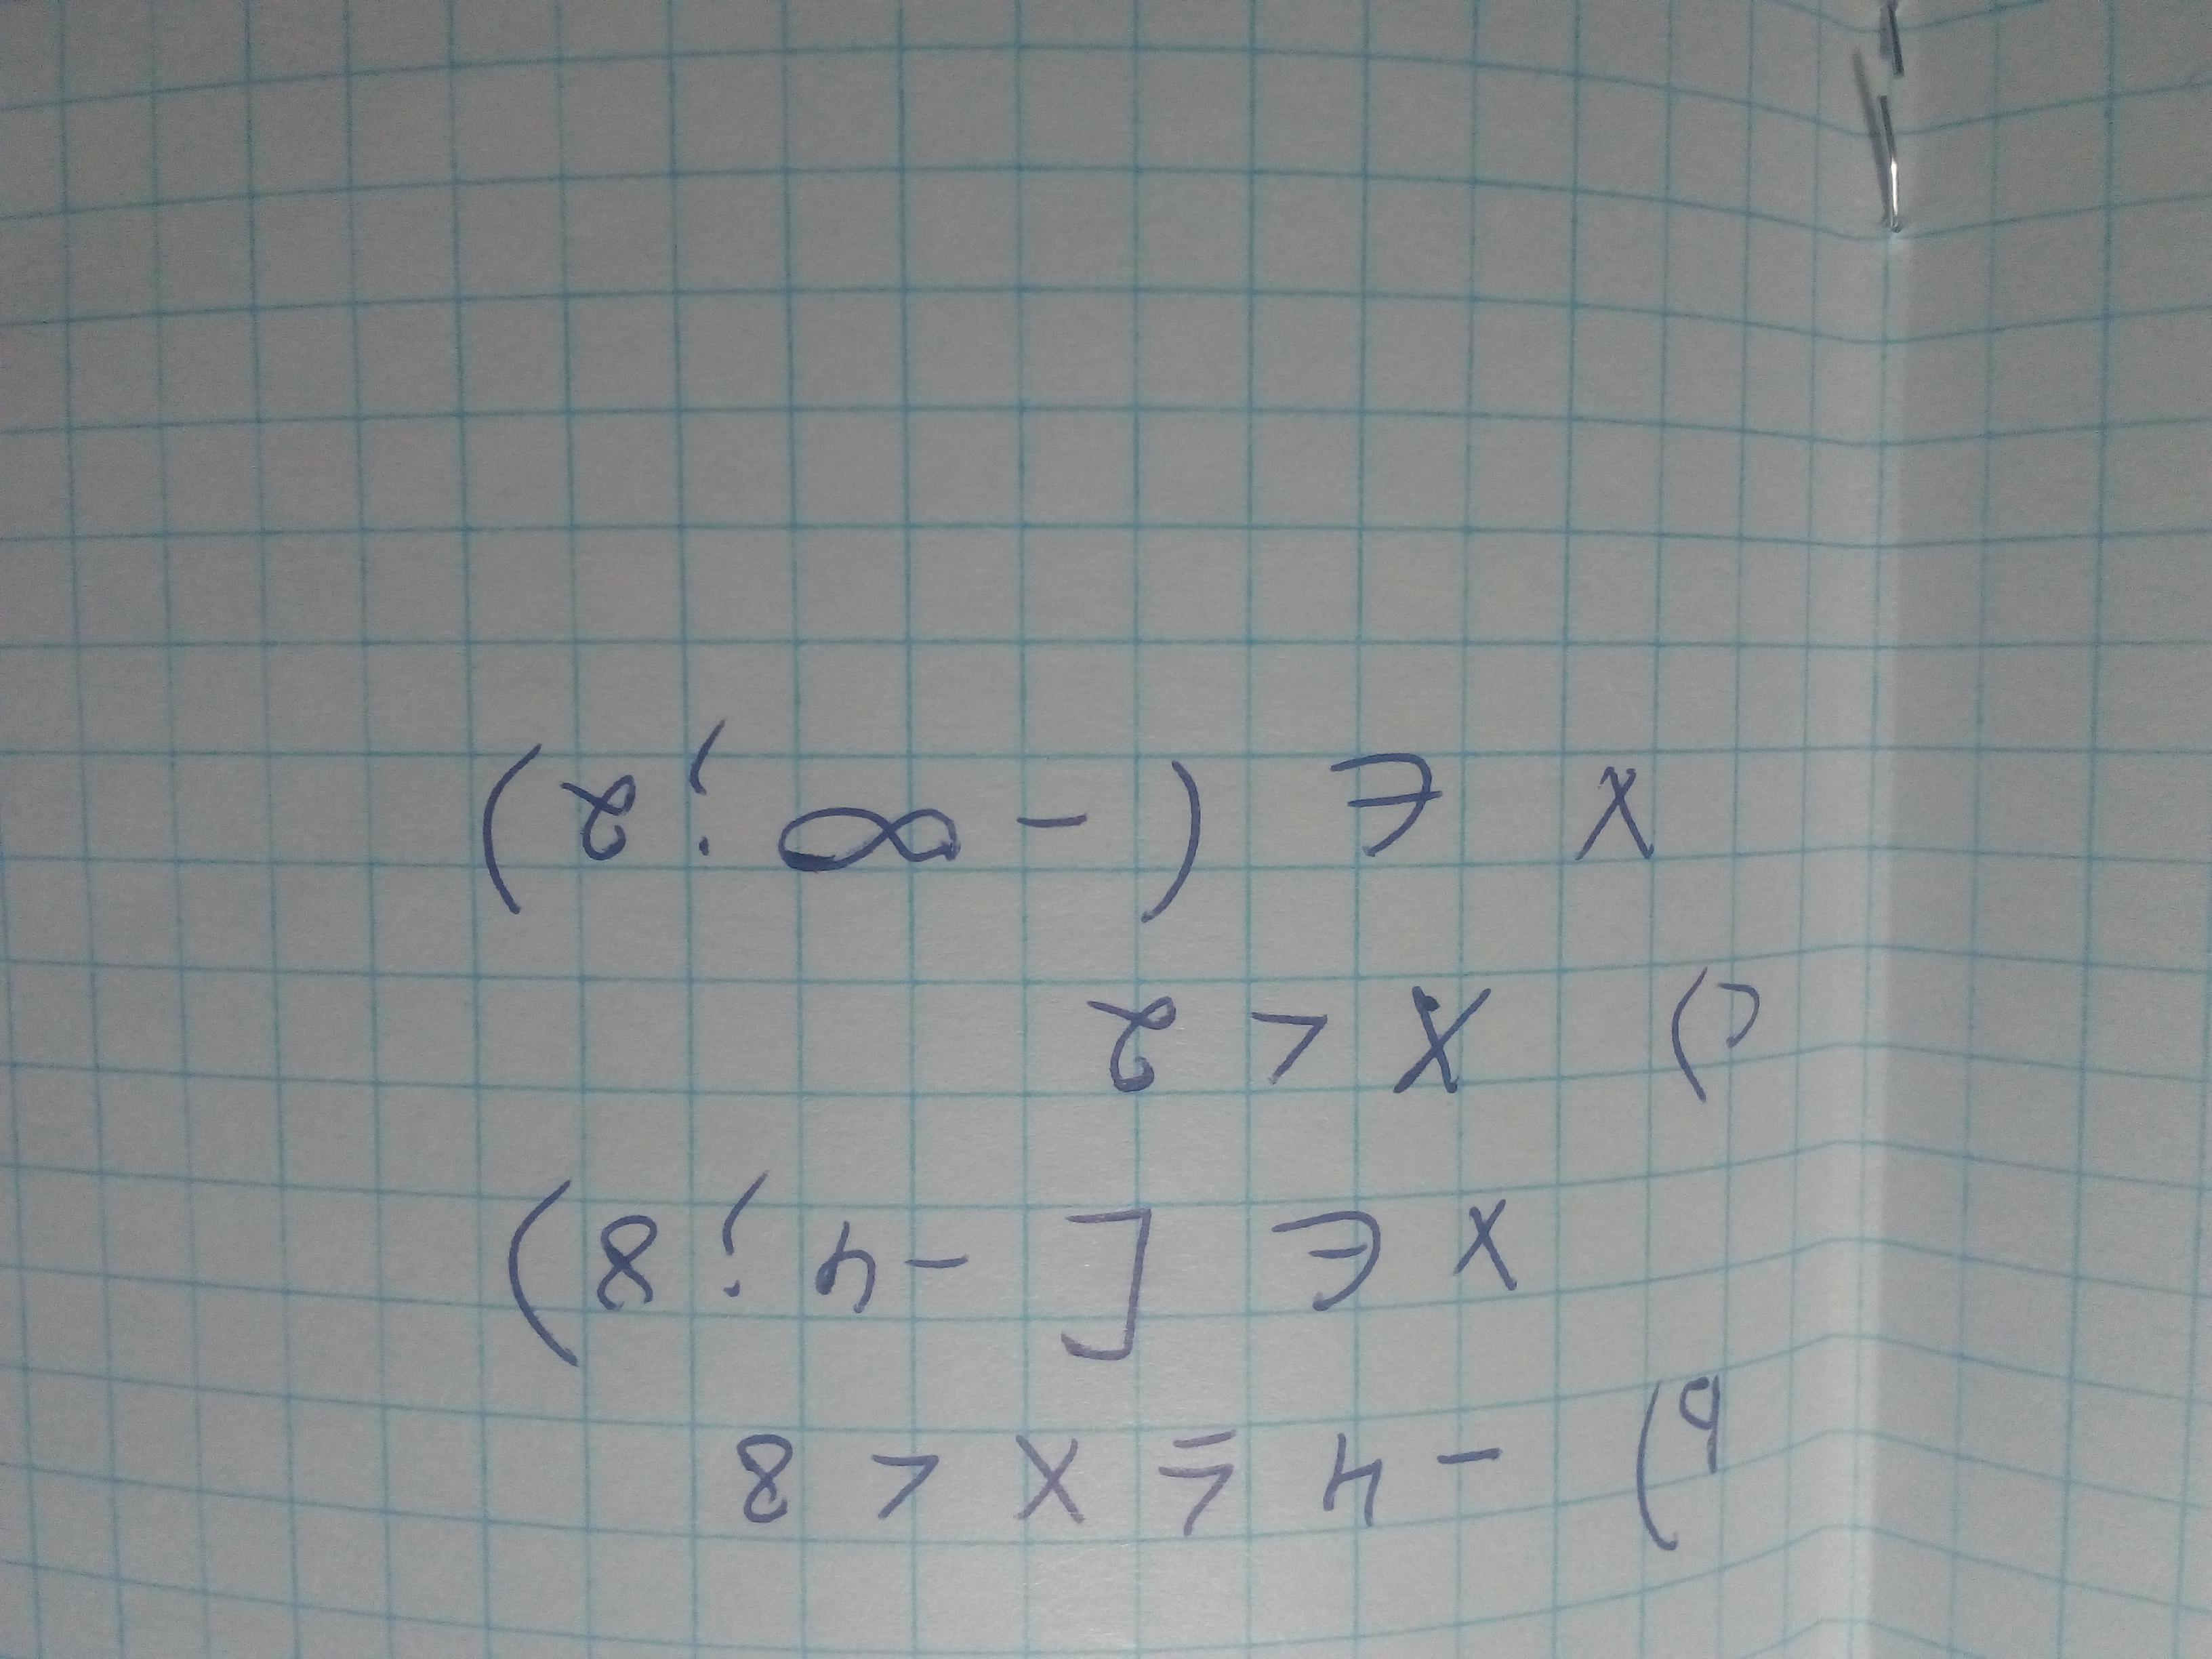 b) - 4 ≤ x < 8
x ∈ [ -4 ; 8)
c) x < 2
x ∈ ( - ∞ ; 2)